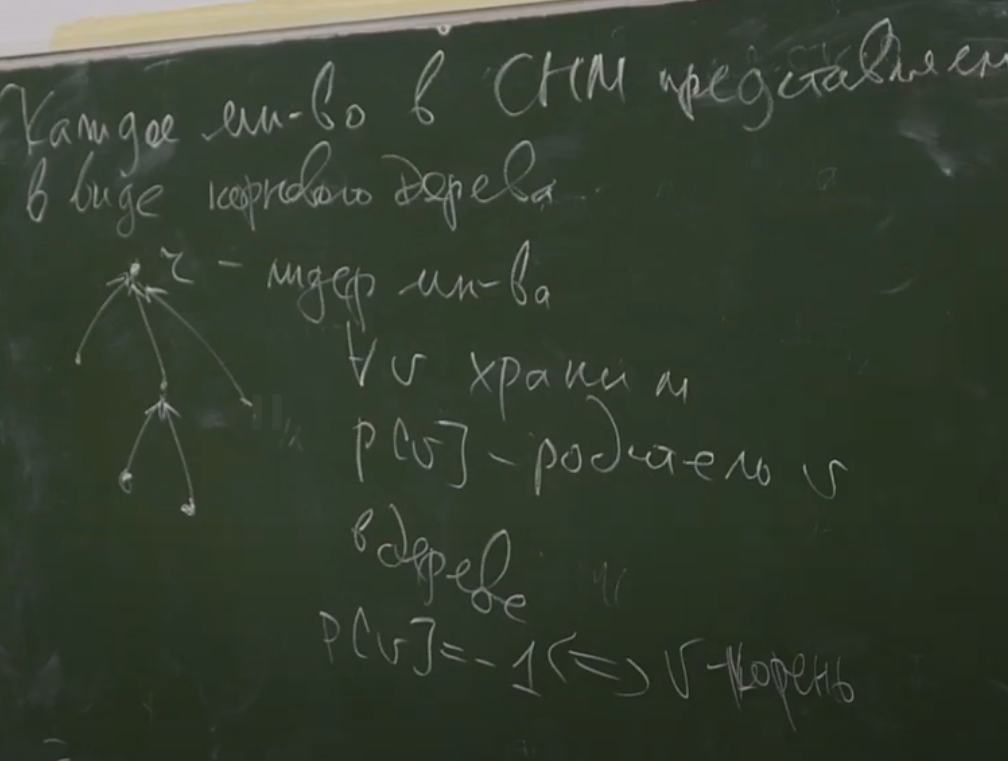 Каждое мн-во в СНМ представляем
в виде корневого дерева
r - лидер мн-ва
∀v храним
P[v] - родитель v
в дереве
P[v]=-1<=> v-корень